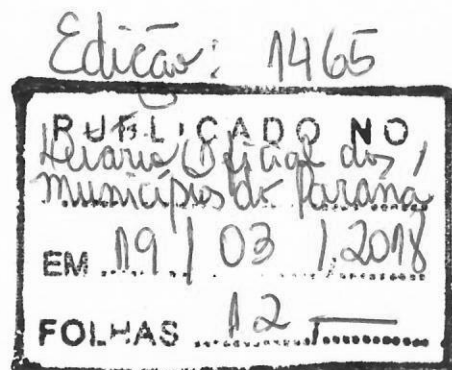 Edição: 1465
PUBLICADO NO
Diário Oficial dos
Municípios do Paraná
EM 19 / 03 / 2018
FOLHAS 12 /